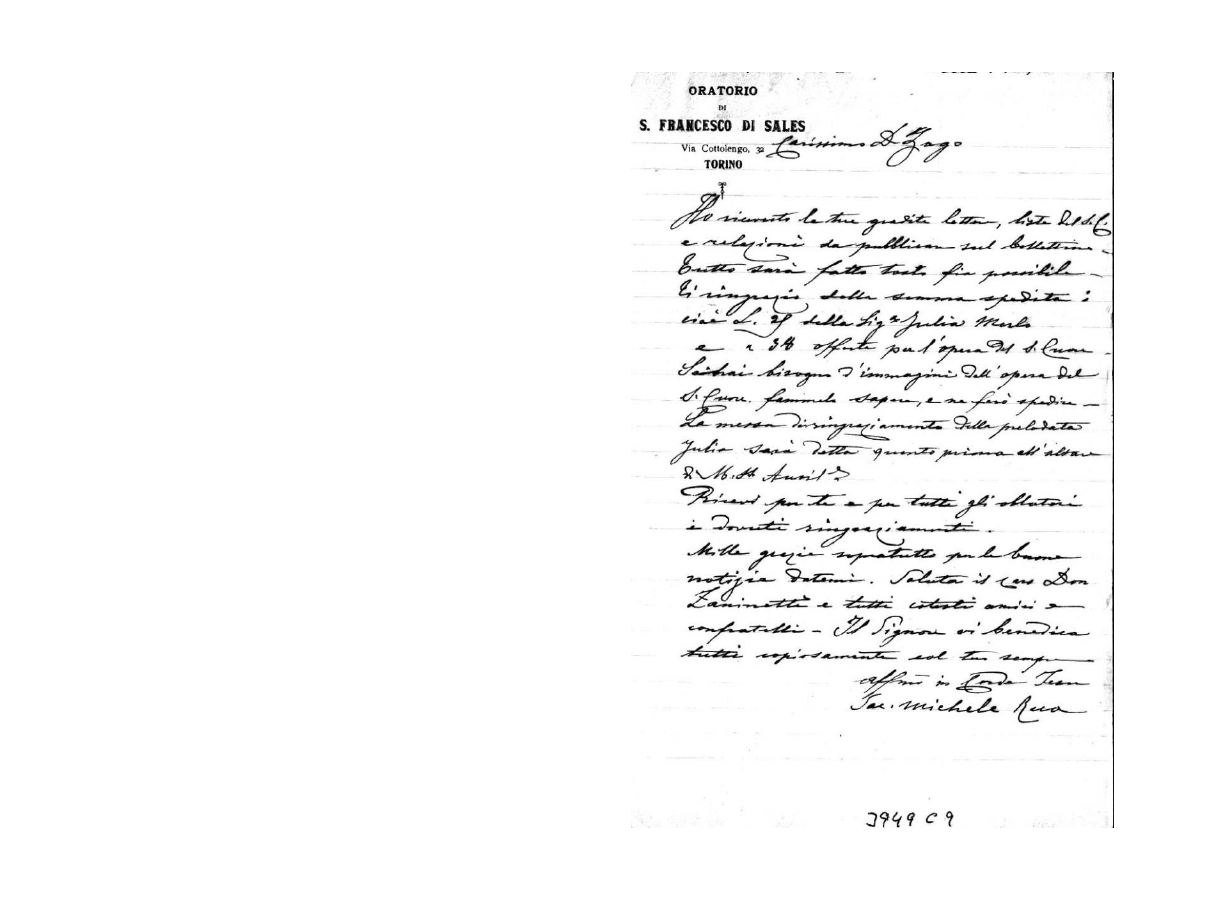 ORATORIO
DI
S. FRANCESCO DI SALES
Via Cottolengo, 32
TORINO
Carissimo D. Zago
Ho ricevuto le tue gradite lettere, liste del S. C.
e relazioni da pubblicare sul bollettino -
Tutto sarà fatto tosto fia possibile -
Ti ringrazio della somma spedita:
cioè L. 25 della Sigra Julia Merlo
e offerte per l'opera del S. Cuore -
Se hai bisogno d'immagini dell'opera del
S. Cuore, fammelo sapere, e ne farò spedire -
La messa di ringraziamento della prelodata
Julia sarà detta quanto prima all'altare
di M. SS. Ausil.
Ricevi per te e per tutti gli oblatori
i dovuti ringraziamenti.
Mille grazie sopratutto per le buone
notizie datemi. Saluta il caro Don
Zaninetti e tutti cotesti amici e
confratelli - Il Signore vi benedica
tutti copiosamente col tuo sempre
Affmo in Corde Jesu
Sac. Michele Rua
3949 C 9